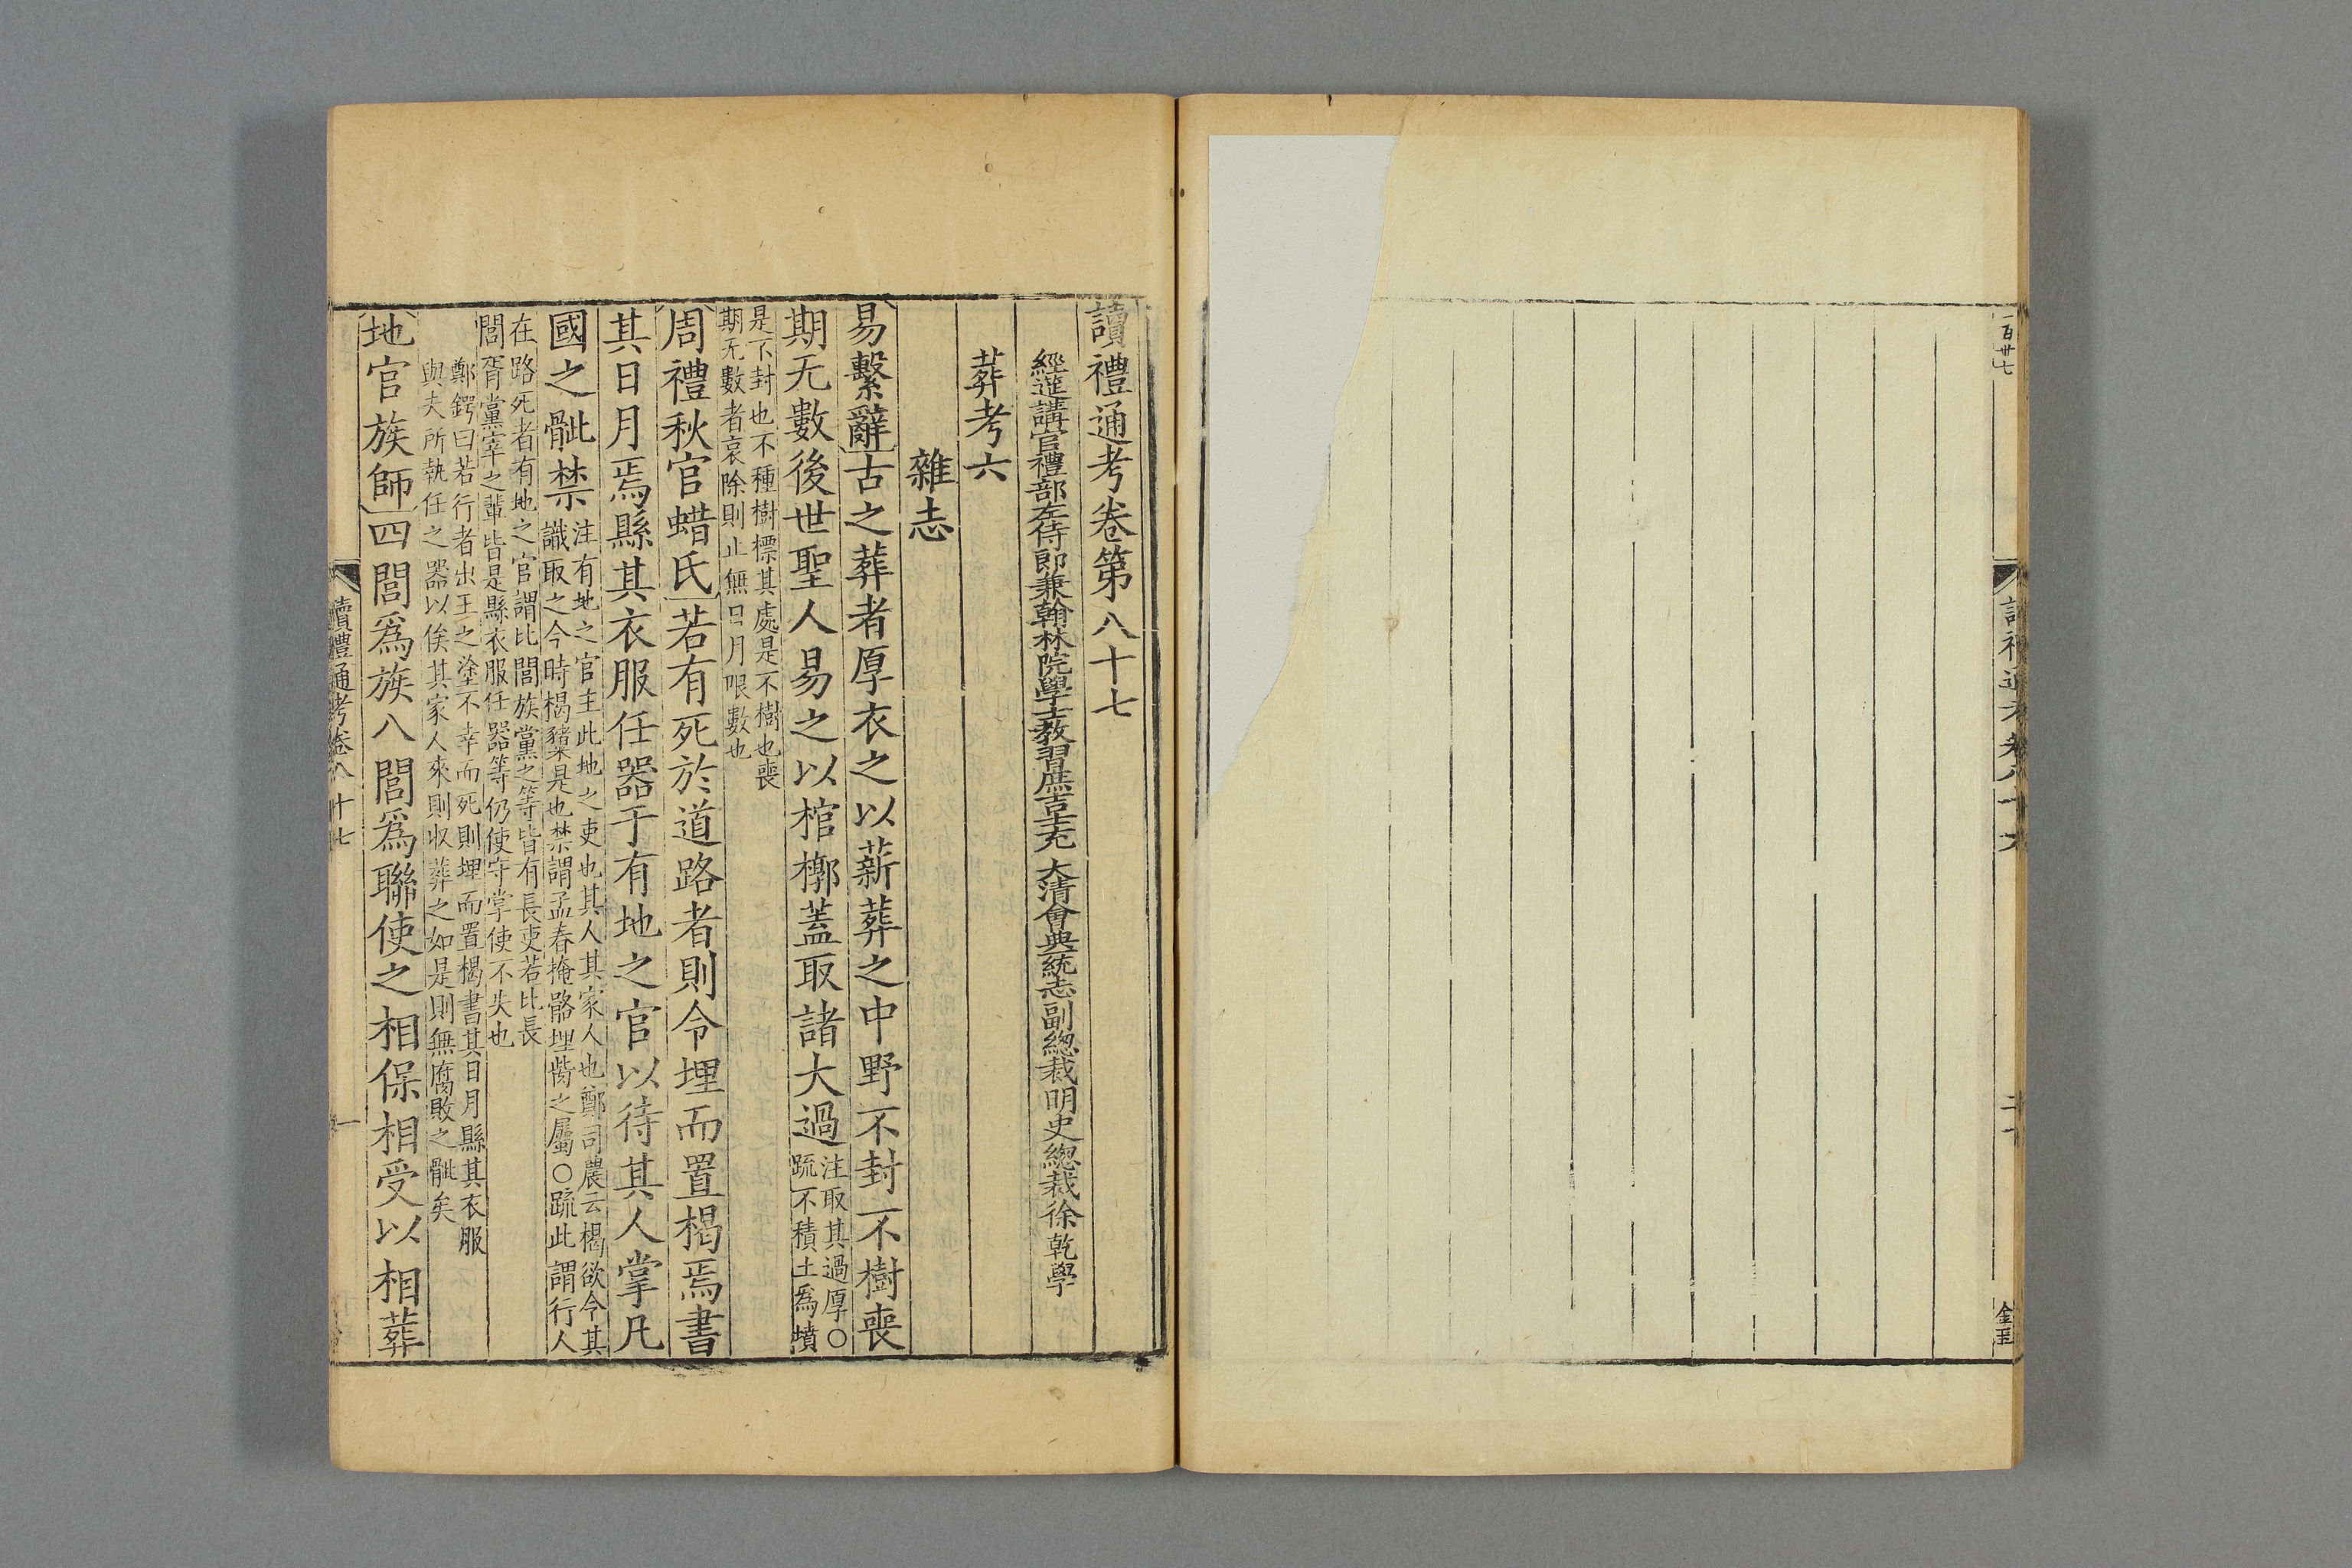 百廿七
金玉
讀禮通考卷第八十七
經進講官禮部左侍郎兼翰林院學士教習庶吉士充 大清會典一統志副總裁明史總裁徐乾學
葬考六
雜志
易繫辭古之葬者厚衣之以薪葬之中野不封不樹喪
期无數後世聖人易之以棺槨蓋取諸大過注取其過厚○
疏不積土爲墳
是不封也不種樹標其處是不樹也喪
期无數者哀除則止無日月限數也
周禮秋官蜡氏若有死於道路者則令埋而置楬焉書
其日月焉縣其衣服任器于有地之官以待其人掌凡
國之骴禁注有地之官主此地之吏也其人其家人也鄭司農云楬欲令其
識取之今時楬櫫是也禁謂孟春掩骼埋胔之屬○疏此謂行人
在路死者有地之官謂比閭族黨之等皆有長吏若比長
閭胥黨宰之輩皆是縣衣服任器等仍使守掌使不失也
鄭鍔曰若行者出王之塗不幸而死則埋而置楬書其日月縣其衣服
與夫所執任之器以俟其家人來則收葬之如是則無腐敗之骴矣
地官族師四閭爲族八閭爲聯使之相保相受以相葬
讀禮通考卷八十七
一